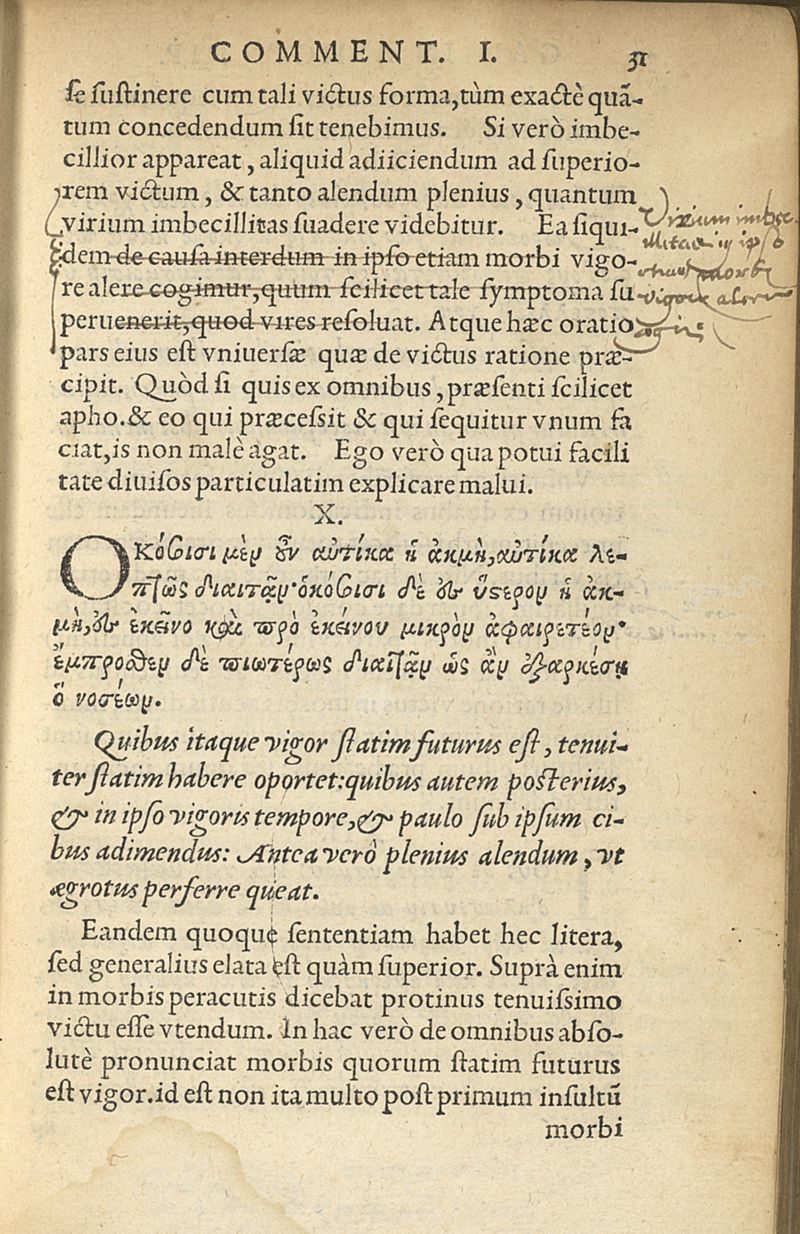 COMMENT. I. 31
se sustinere cum tali victus forma, tùm exactè quā-
tum concedendum sit tenebimus. Si verò imbe-
cillior appareat, aliquid adiiciendum ad superio-
rem victum, & tanto alendum plenius, quantum
virium imbecillitas suadere videbitur. Ea siqui-
dem de causa interdum in ipso etiam morbi vigo-
re alere cogimur, quum scilicet tale symptoma su
peruenerit, quod vires resoluat. Atque hæc oratio
pars eius est vniuersæ quæ de victus ratione præ-
cipit. Quòd si quis ex omnibus, præsenti scilicet
apho. & eo qui præcessit & qui sequitur vnum fa
ciat, is non malè agat. Ego verò qua potui facili
tate diuisos particulatim explicare malui.
Virium imbec
illitas in ipso
morbi
vigore alere
cogimur
X.
Ὁκόσοισι μὲν οὖν αὐτίκα ἡ ἀκμὴ, αὐτίκα λε-
πτῶς διαιτᾶν· ὁκόσοισι δὲ ἐς ὕστερον ἡ ἀκ-
μὴ, ἐς ἐκεῖνο καὶ πρὸ ἐκείνου μικρὸν ἀφαιρετέον·
ἔμπροσθεν δὲ πιωτέρως διαιτᾶν ὡς ἂν ἐξαρκέσῃ
ὁ νοσέων.
Quibus itaque vigor statim futurus est, tenui-
ter statim habere oportet: quibus autem posterius,
& in ipso vigoris tempore, & paulo sub ipsum ci-
bus adimendus: Antea verò plenius alendum, vt
ægrotus perferre queat.
Eandem quoque sententiam habet hec litera,
sed generalius elata est quàm superior. Suprà enim
in morbis peracutis dicebat protinus tenuissimo
victu esse vtendum. In hac verò de omnibus abso-
lutè pronunciat morbis quorum statim futurus
est vigor. id est non ita multo post primum insultū
morbi